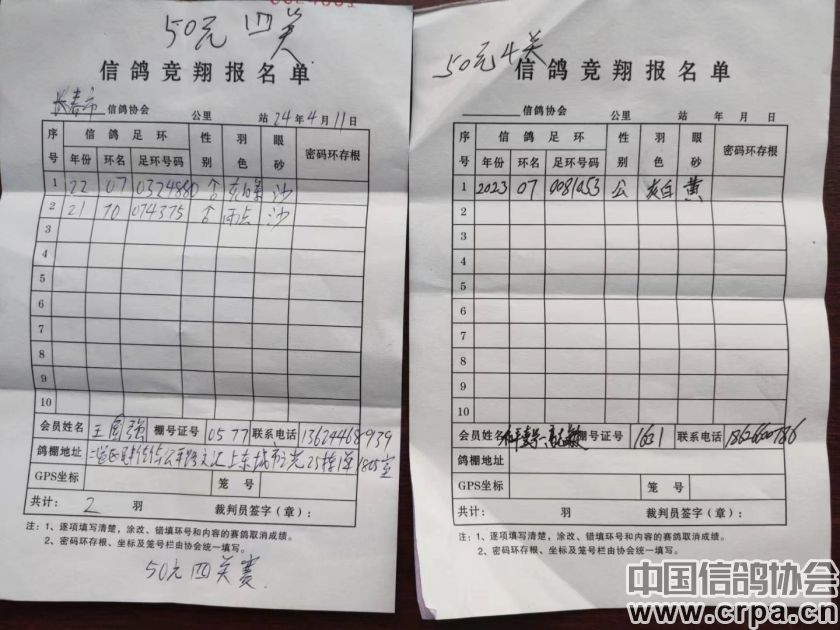 50元 四关
信鸽竞翔报名单
长春市 信鸽协会 公里 站 24年4月11日
序号 信鸽足环 性别 羽色 眼砂 密码环存根
年份 环名 足环号码
1 22 07 0324880 沙
2 21 10 074375 雨点 沙
3
4
5
6
7
8
9
10
会员姓名 王国强 棚号证号 0577 联系电话 13624468939
鸽棚地址
GPS坐标 笼号
共计: 2 羽 裁判员签字(章):
注:1、逐项填写清楚,涂改、错填环号和内容的赛鸽取消成绩。
2、密码环存根、坐标及笼号栏由协会统一填写。
50元 四关赛
50元4关
信鸽竞翔报名单
信鸽协会 公里 站 年 月 日
序号 信鸽足环 性别 羽色 眼砂 密码环存根
年份 环名 足环号码
1 2023 07 0081053 公 灰白 黄
2
3
4
5
6
7
8
9
10
会员姓名 棚号证号 1631 联系电话
鸽棚地址
GPS坐标 笼号
共计: 羽 裁判员签字(章):
注:1、逐项填写清楚,涂改、错填环号和内容的赛鸽取消成绩。
2、密码环存根、坐标及笼号栏由协会统一填写。
中国信鸽协会
www.crpa.cn